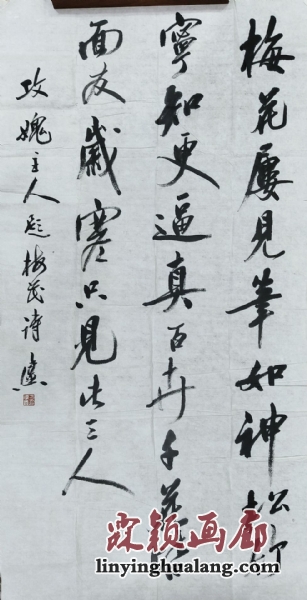 梅花屡见笔如神松竹
宁知更逼真百卉千花皆
面友岁寒只见此三人
攻媿主人题梅花诗
霖颖画廊
linyinghualang.com